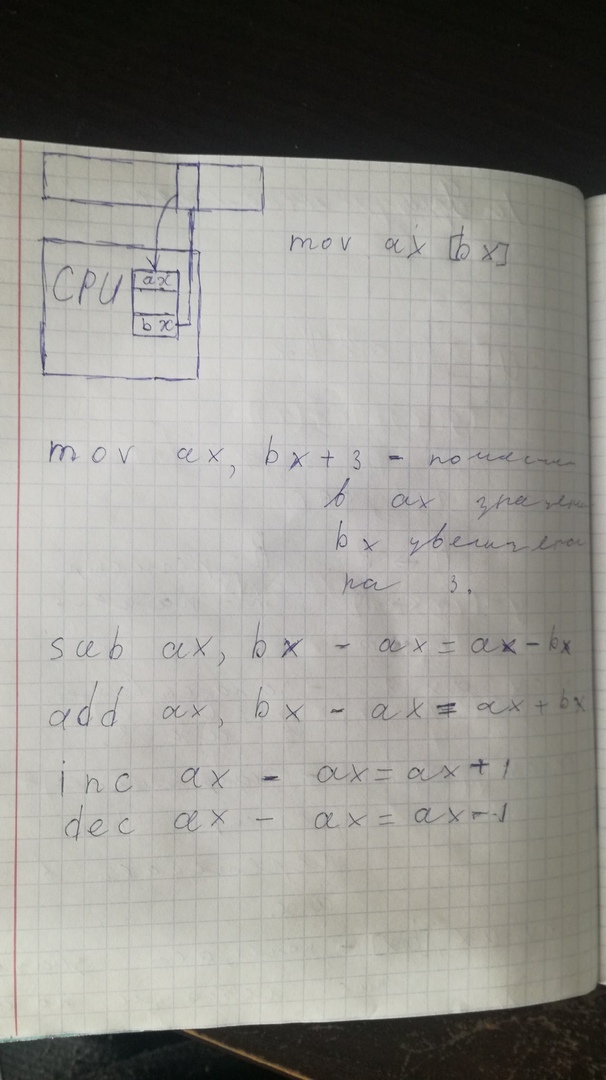 mov ax [bx]
CPU
ax
bx
mov ax, bx + 3 - помести
в ax значени
bx увеличена
на 3.
sub ax, bx - ax = ax - bx
add ax, bx - ax = ax + bx
inc ax - ax = ax + 1
dec ax - ax = ax - 1